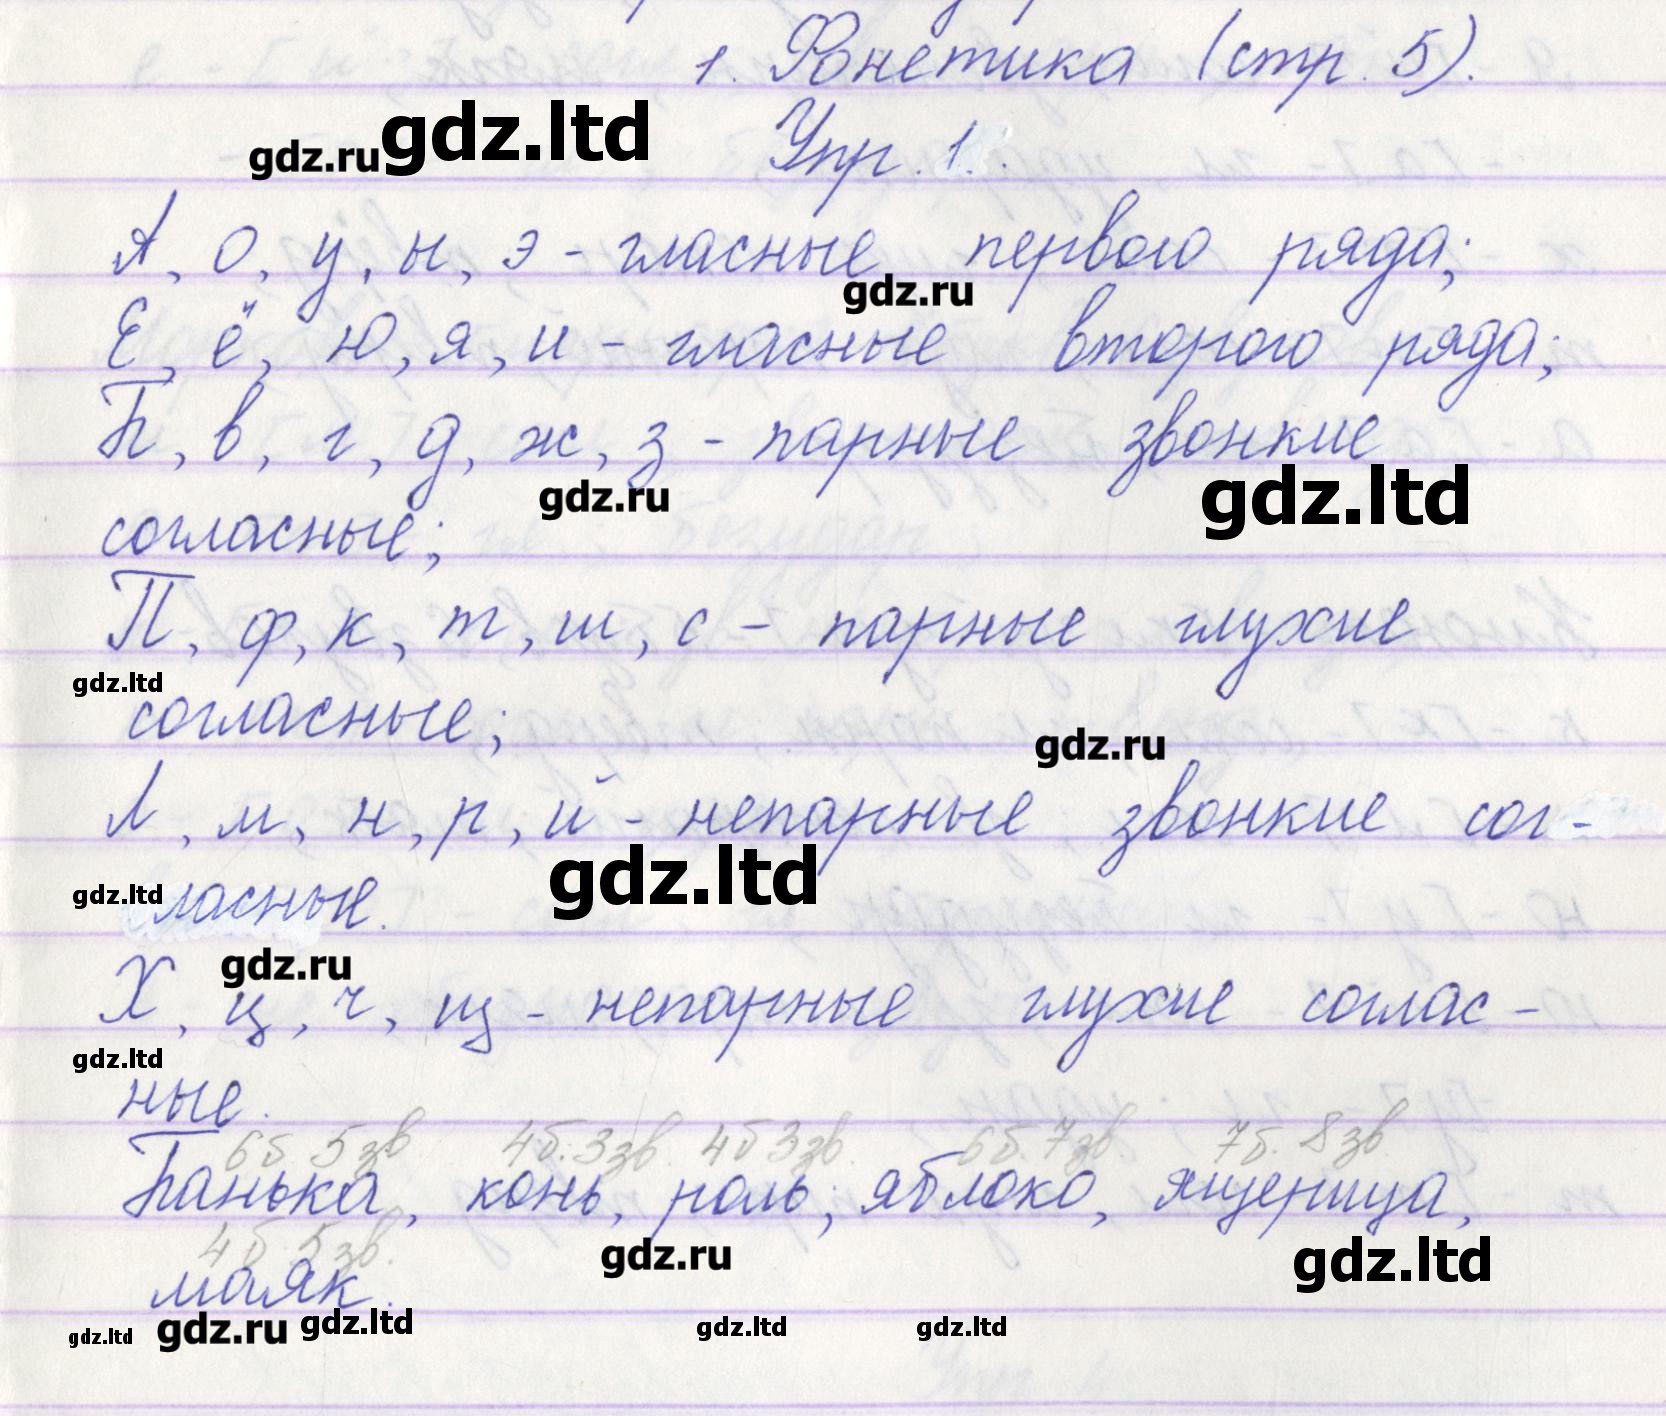 1. Фонетика (стр. 5).
gdz.ru gdz.ltd
Упр. 1.
А, о, у, ы, э - гласные первого ряда;
gdz.ru
Е, ё, ю, я, и - гласные второго ряда;
Б, в, г, д, ж, з - парные звонкие
gdz.ru gdz.ltd
согласные;
П, ф, к, т, ш, с - парные глухие
gdz.ltd
согласные;
gdz.ru
Л, м, н, р, й - непарные звонкие сог-
gdz.ltd gdz.ltd
ласные.
gdz.ru
Х, ц, ч, щ - непарные глухие соглас-
gdz.ltd
ные.
6б. 5зв 4б. 3зв. 4б 3зв. 6б. 7зв 7б. 8зв.
Банька, конь, роль, яблоко, ящерица,
4б 5зв.
gdz.ru gdz.ltd
маяк.
gdz.ltd gdz.ru gdz.ltd gdz.ltd gdz.ltd